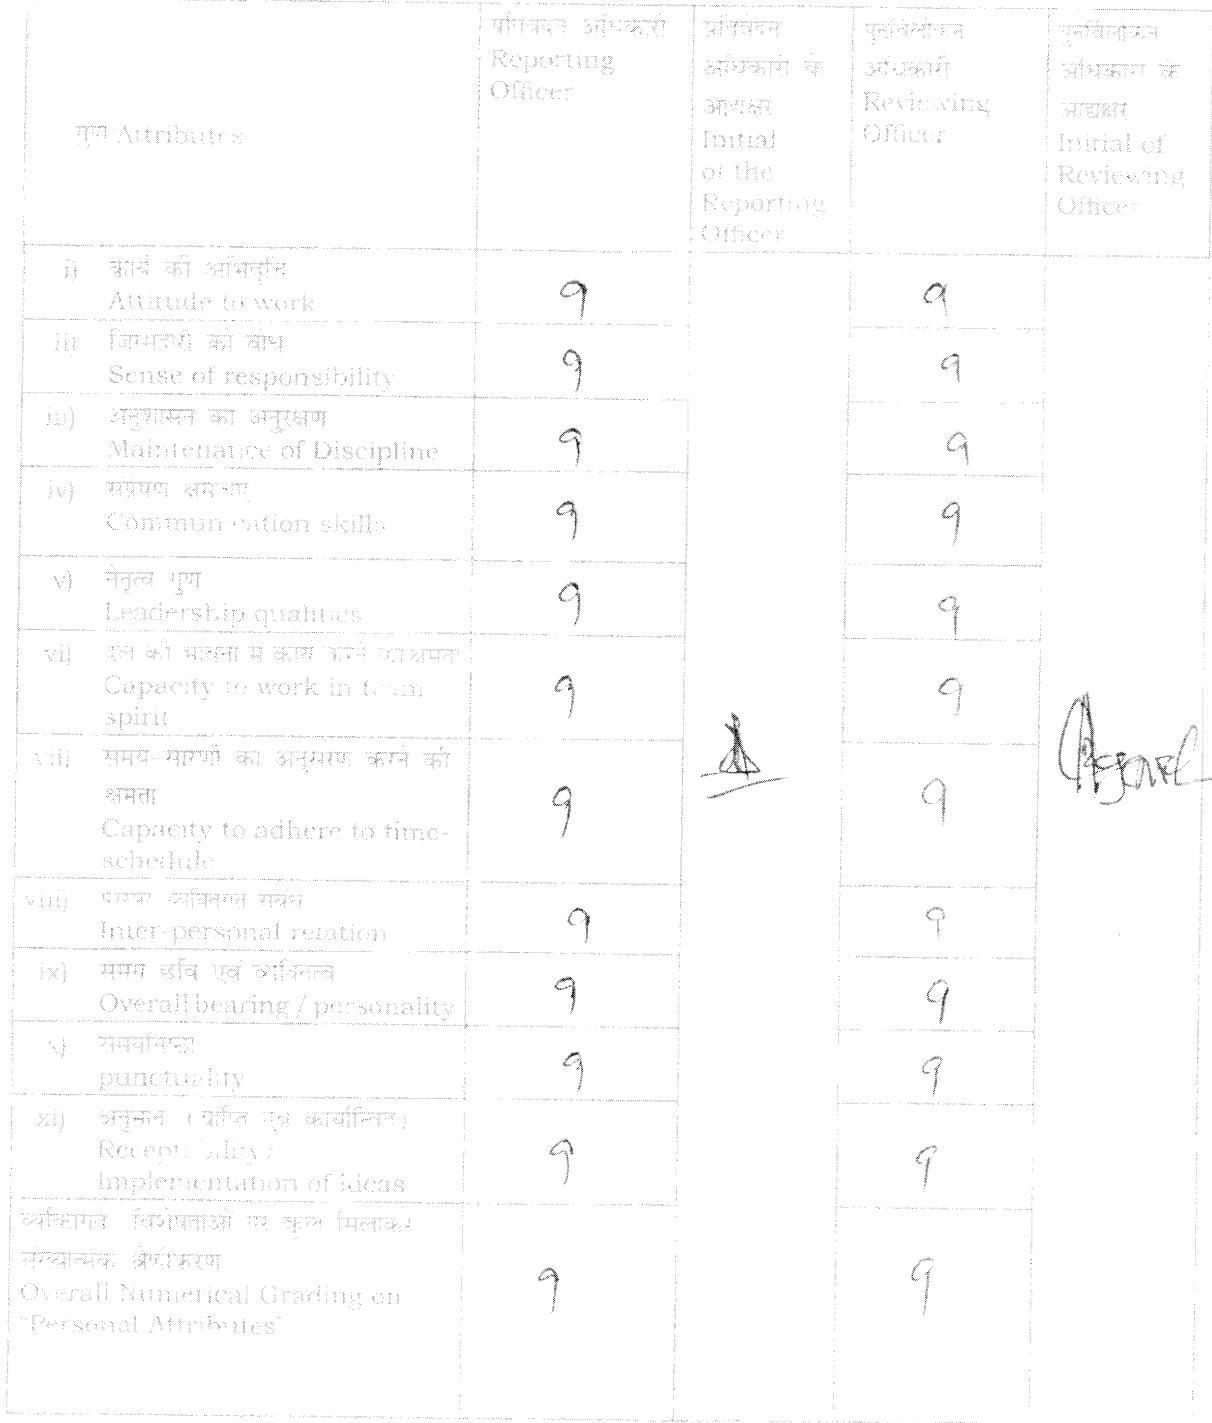 गुण/Attributes
प्रतिवेदन अधिकारी
Reporting
Officer
प्रतिवेदन
अधिकारी के
आद्यक्षर
Initial
of the
Reporting
Officer
पुनर्विलोकन
अधिकारी
Reviewing
Officer
पुनर्विलोकन
अधिकारी के
आद्यक्षर
Initial of
Reviewing
Officer
i) कार्य की अभिवृत्ति
Attitude to work 9 9
ii) जिम्मेदारी का बोध
Sense of responsibility 9 9
iii) अनुशासन का अनुरक्षण
Maintenance of Discipline 9 9
iv) संप्रेषण क्षमताएं
Communication skills 9 9
v) नेतृत्व गुण
Leadership qualities 9 9
vi) दल की भावना में कार्य करने की क्षमता
Capacity to work in team 9 9
spirit
vii) समय-सारणी का अनुसरण करने की
क्षमता
Capacity to adhere to time- 9 9
schedule
viii) परस्पर व्यक्तिगत संबंध
Inter-personal relation 9 9
ix) समग्र छवि एवं व्यक्तित्व
Overall bearing / personality 9 9
x) समयनिष्ठा
punctuality 9 9
xi) अनुमान (प्राप्ति एवं कार्यान्वित)
Receptibility /
Implementation of ideas 9 9
व्यक्तिगत विशेषताओं पर कुल मिलाकर
संख्यात्मक श्रेणीकरण
Overall Numerical Grading on 9 9
"Personal Attributes"